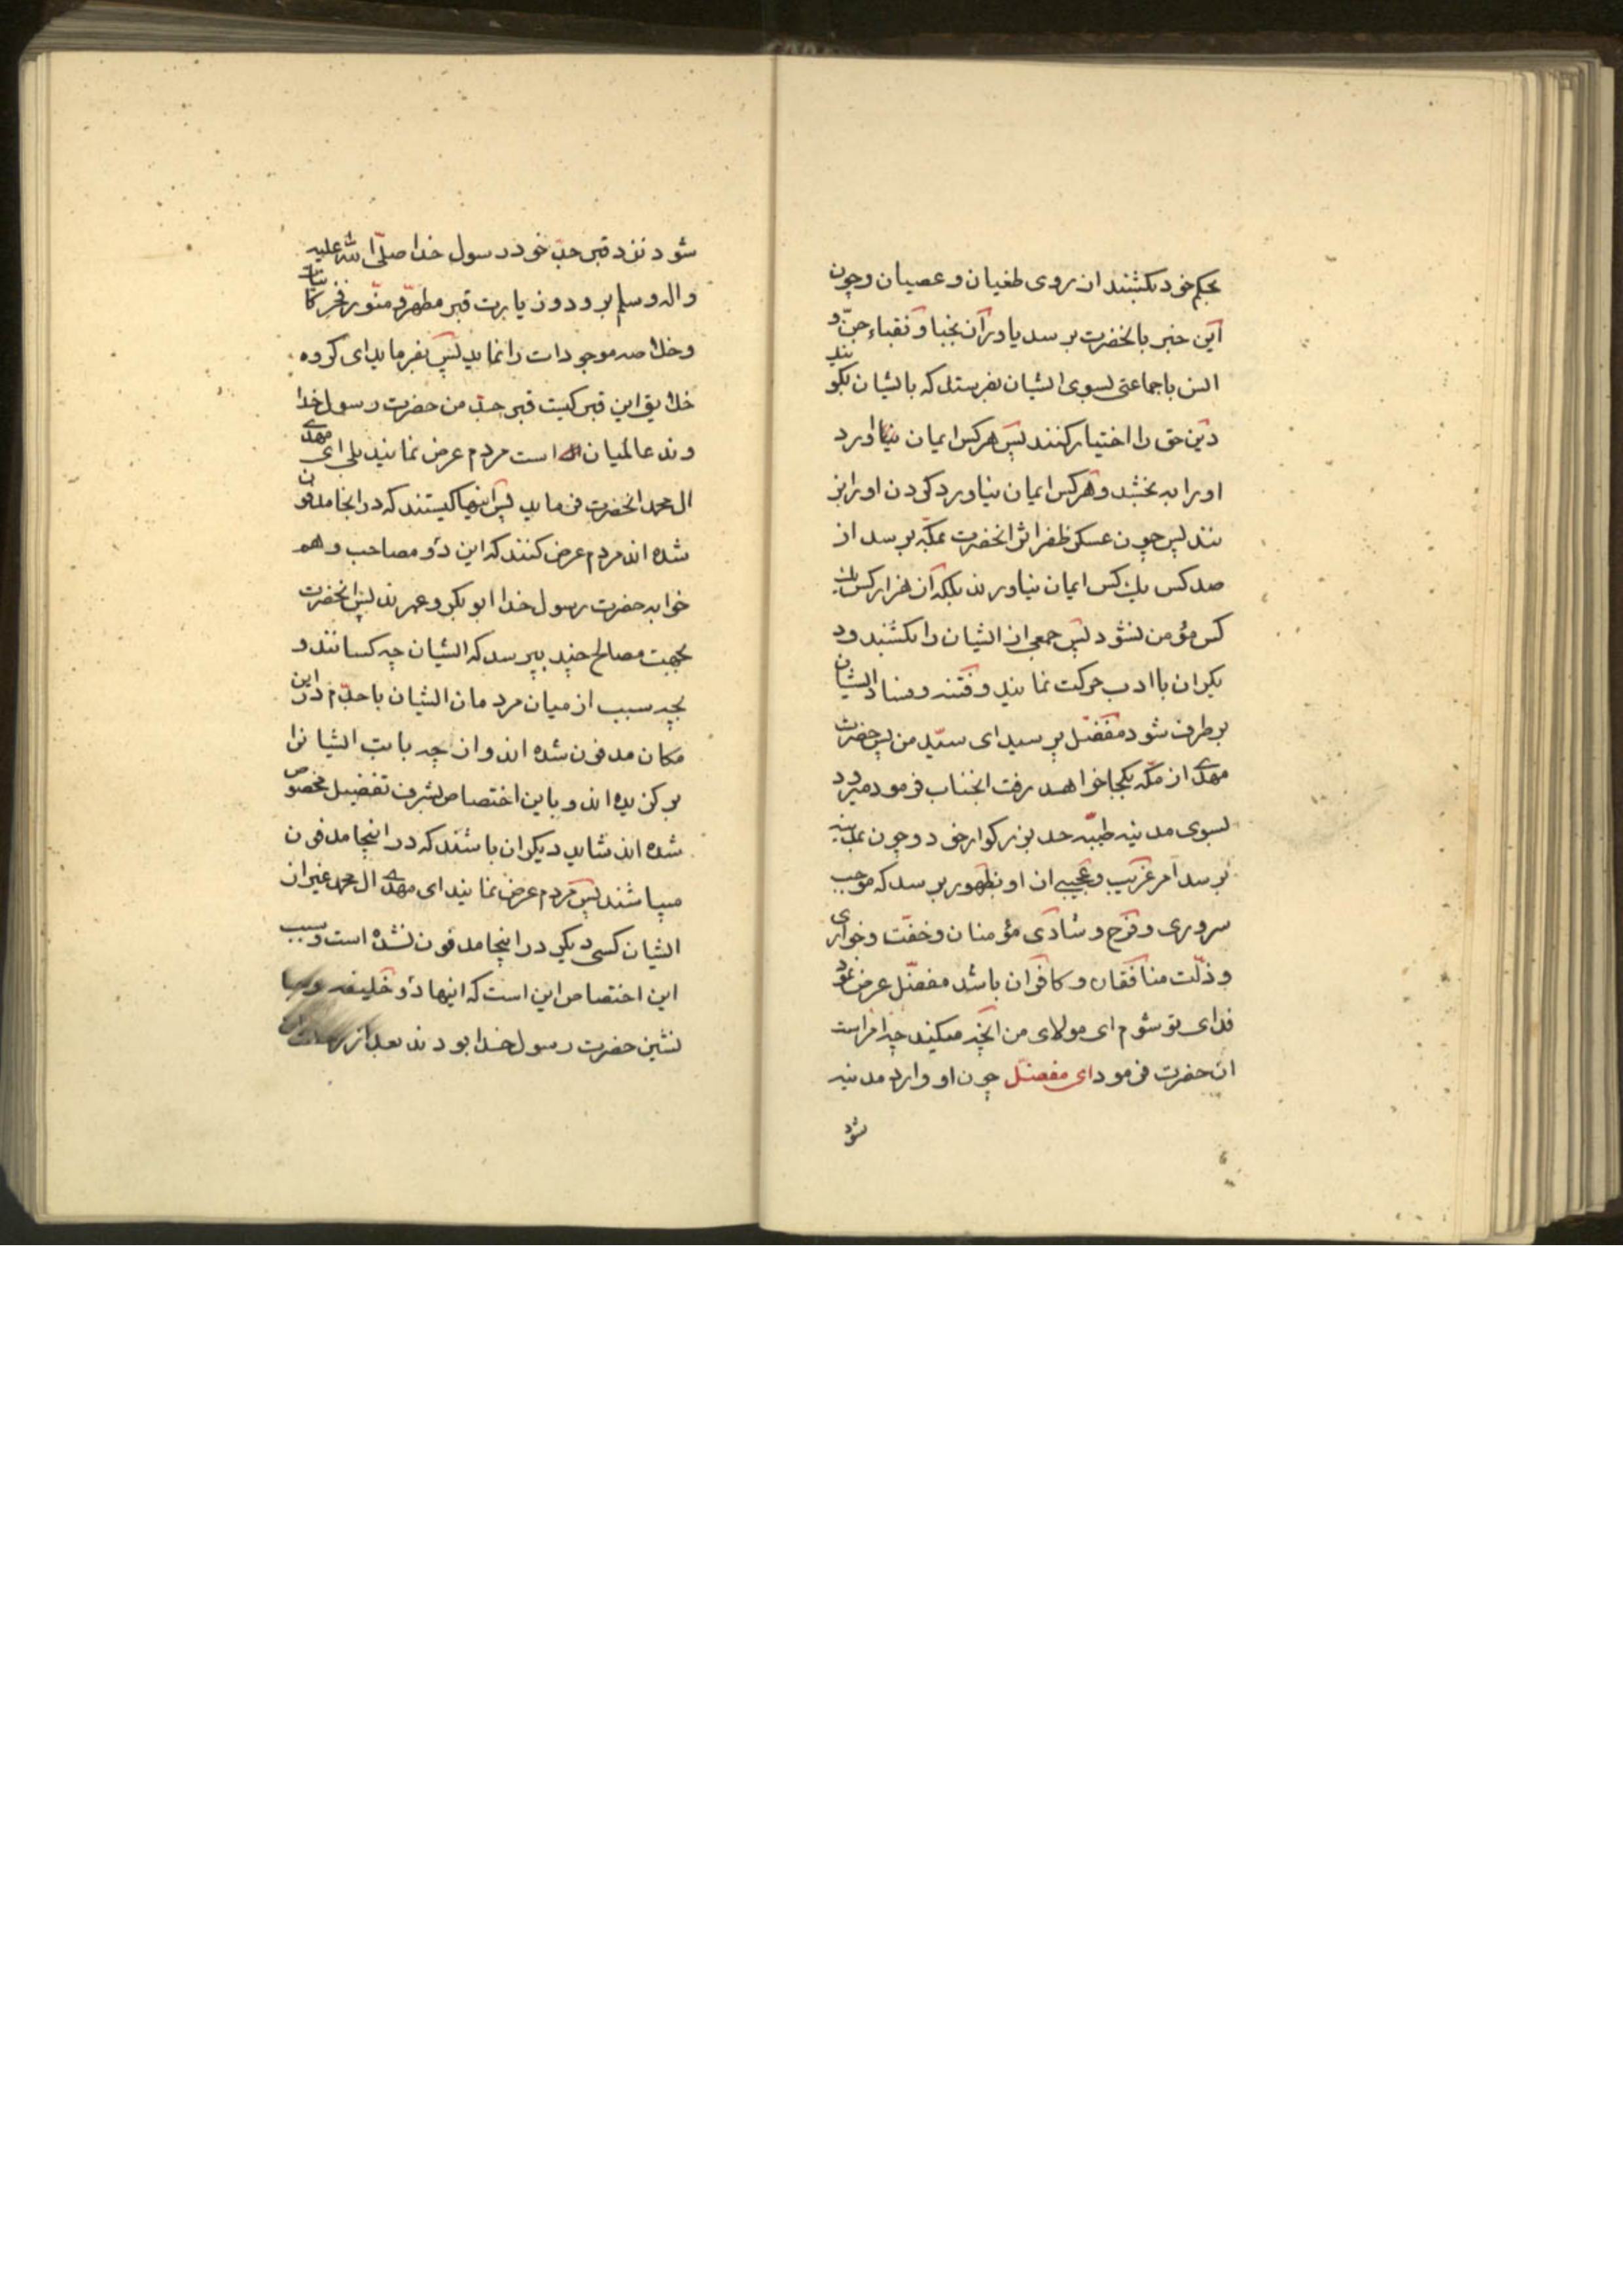 بحکم خود بکشند از روی طغیان و عصیان و چون
این خبر بانحضرت برسد یاوران نجبا و نقباء جن و
انس با جماعتی بسوی ایشان بفرستد که بایشان بکویند
دین حق را اختیار کنند پس هر کس ایمان بیاورد
او را به بخشد و هر کس ایمان نیاورد کردن او را بز
نند پس چون عسکر ظفر اثر انحضرت بمکه برسد از
صد کس یک کس ایمان نیاورند بلکه از هزار کس یک
کس مؤمن نشود پس جمعی از ایشان را بکشند و د
یکران با ادب حرکت نمایند و فتنه و فساد ایشان
بر طرف شود مفضل پرسید ای سید من پس حضرت
مهدی از مکه بکجا خواهد رفت انجناب فرمود میرود
بسوی مدینه طیبه جد بزرکوار خود و چون بمدینه
برسد امر غریب و عجیبی از او بظهور برسد که موجب
سروری و فرح و شادی مؤمنان و خفت و خواری
و ذلت منافقان و کافران باشد مفضل عرض نمود
فدای تو شوم ای مولای من انچه میکنید چه امر است
ان حضرت فرمود ای مفضل چون او وارد مدینه
شود
شود نزد قبر جد خود رسول خدا صلی الله علیه
واله وسلم برود و زیارت قبر مطهر و منور فخر کاینات
و خلاصه موجودات را نماید پس بفرماید ای کروه
خلایق این قبر کیست قبر جد من حضرت رسول خدا
وند عالمیان است مردم عرض نمایند بلی ای مهدی
ال محمد انحضرت فرماید پس اینها کیستند که در انجا مدفون
شده اند مردم عرض کنند که این دو مصاحب و هم
خوابه حضرت رسول خدا ابو بکر و عمرند پس انحضرت
بجهت مصالح چند بپرسد که ایشان چه کسانند و
بچه سبب از میان مردمان ایشان با جدم در این
مکان مدفون شده اند و از چه بابت ایشانرا
برکزیده اند و باین اختصاص بشرف تفضیل مخصوص
شده اند شاید دیکران باشند که در اینجا مدفون
میباشند پس مردم عرض نمایند ای مهدی ال محمد غیر از
ایشان کسی دیکر در اینجا مدفون نشده است و سبب
این اختصاص این است که اینها دو خلیفه و جا
نشین حضرت رسول خدا بودند بعد از